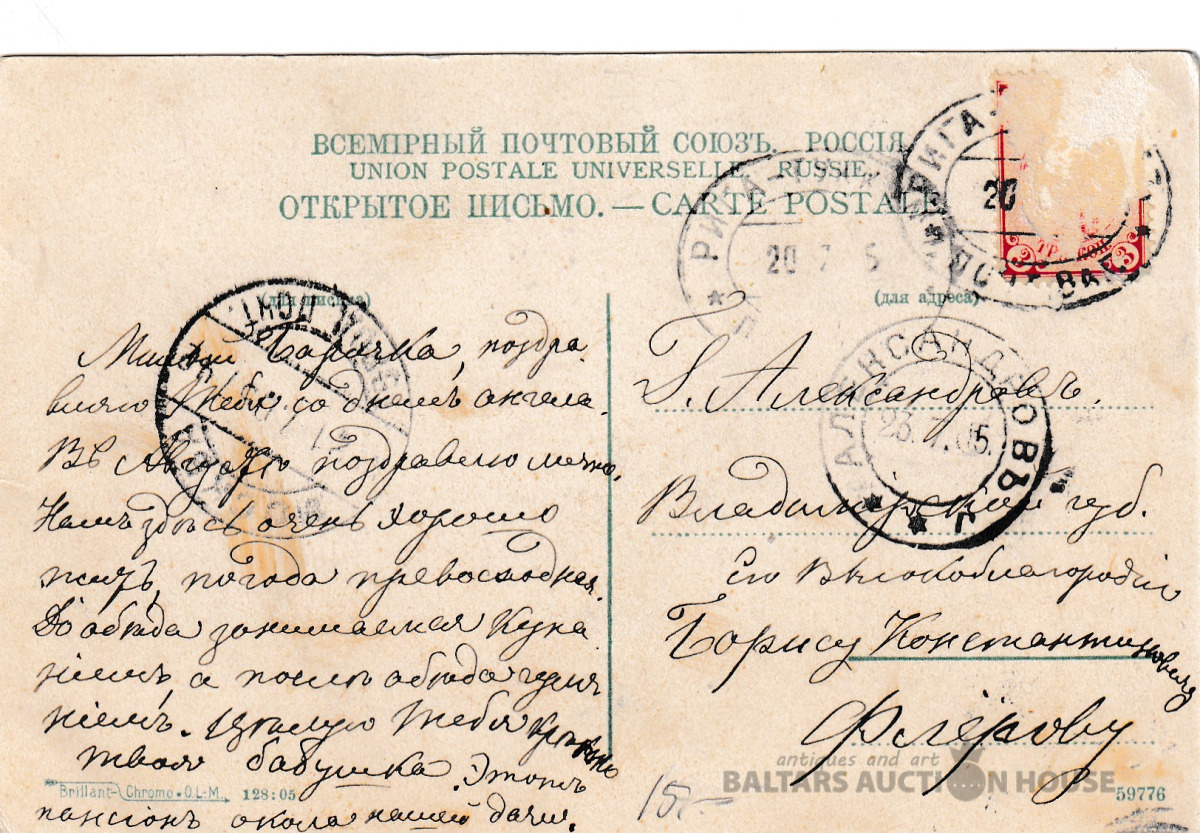 ВСЕМІРНЫЙ ПОЧТОВЫЙ СОЮЗЪ. РОССІЯ.
UNION POSTALE UNIVERSELLE. RUSSIE.
ОТКРЫТОЕ ПИСЬМО. — CARTE POSTALE
РИГА
20 7 5
РИГА
20
ТРИ КОП.
3 3
(для письма)
(для адреса)
АЛЕКСАНДРОВЪ
23.7.05.
поздра
вляю Тебя со днемъ ангела.
Въ Августѣ поздравлю лично.
Намъ здѣсь очень хорошо
жить, погода превосходная.
До обѣда занимаемся купа
ніемъ, а послѣ обѣда гуля
ніемъ. Цѣлую Тебя крѣпко
твоя бабушка. Этотъ
пансіонъ окола нашей дачи.
Г. Александровъ.
Владимирской губ.
Его Высокоблагородію
Борису Константиновичу
Флёрову
Brillant-Chromo • O.L.-M. 128:05
15-
59776
antiques and art
BALTARS AUCTION HOUSE